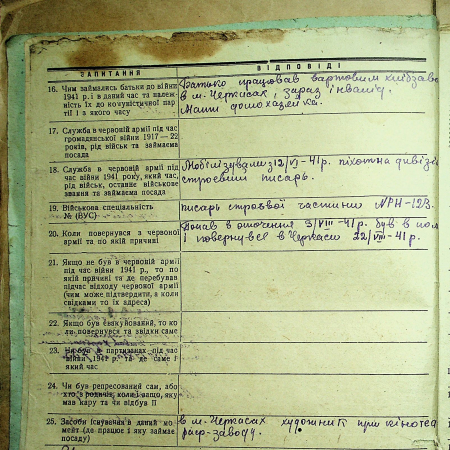 ЗАПИТАННЯ
ВІДПОВІДІ
16. Чим займались батьки до війни
1941 р. і в даний час та належ-
ність їх до комуністичної пар
тії і з якого часу
Батько працював вартовим хлібзаво
в м. Черкасах, зараз інвалід.
Мати домохазяйка.
17. Служба в червоній армії під час
громадянської війни 1917—22
років, рід військ та займаєма
посада
18. Служба в червоній армії під
час війни 1941 року, який час,
рід військ, останнє військове
звання та займаєма посада
Мобілізували 12/VI - 41р. піхотна дивізі
строєвий писарь.
19. Військова спеціальність
№ (ВУС)
писарь строєвої частини № РН-123.
20. Коли повернувся з червоної
армії та по якій причині
Попав в оточення 3/VIII - 41р. був в пол
і повернувся в Черкаси 22/VIII - 41р.
21. Якщо не був в червоній армії
під час війни 1941 р., то по
якій причині та де перебував
підчас відходу червоної армії
(чим може підтвердити, а коли
свідками то їх адреса)
22. Якщо був евакуйований, то ко
ли повернувся та звідки саме
23. Чи був в партизанах під час
війни 1941 р. та де саме і
який час
24. Чи був репресований сам, або
хто з родичів, коли і защо, яку
мав кару та чи відбув її
25. Засоби існування в даний мо-
мент (де працює і яку займає
посаду)
в м. Черкасах художник при кінотеа
раф-заводу.